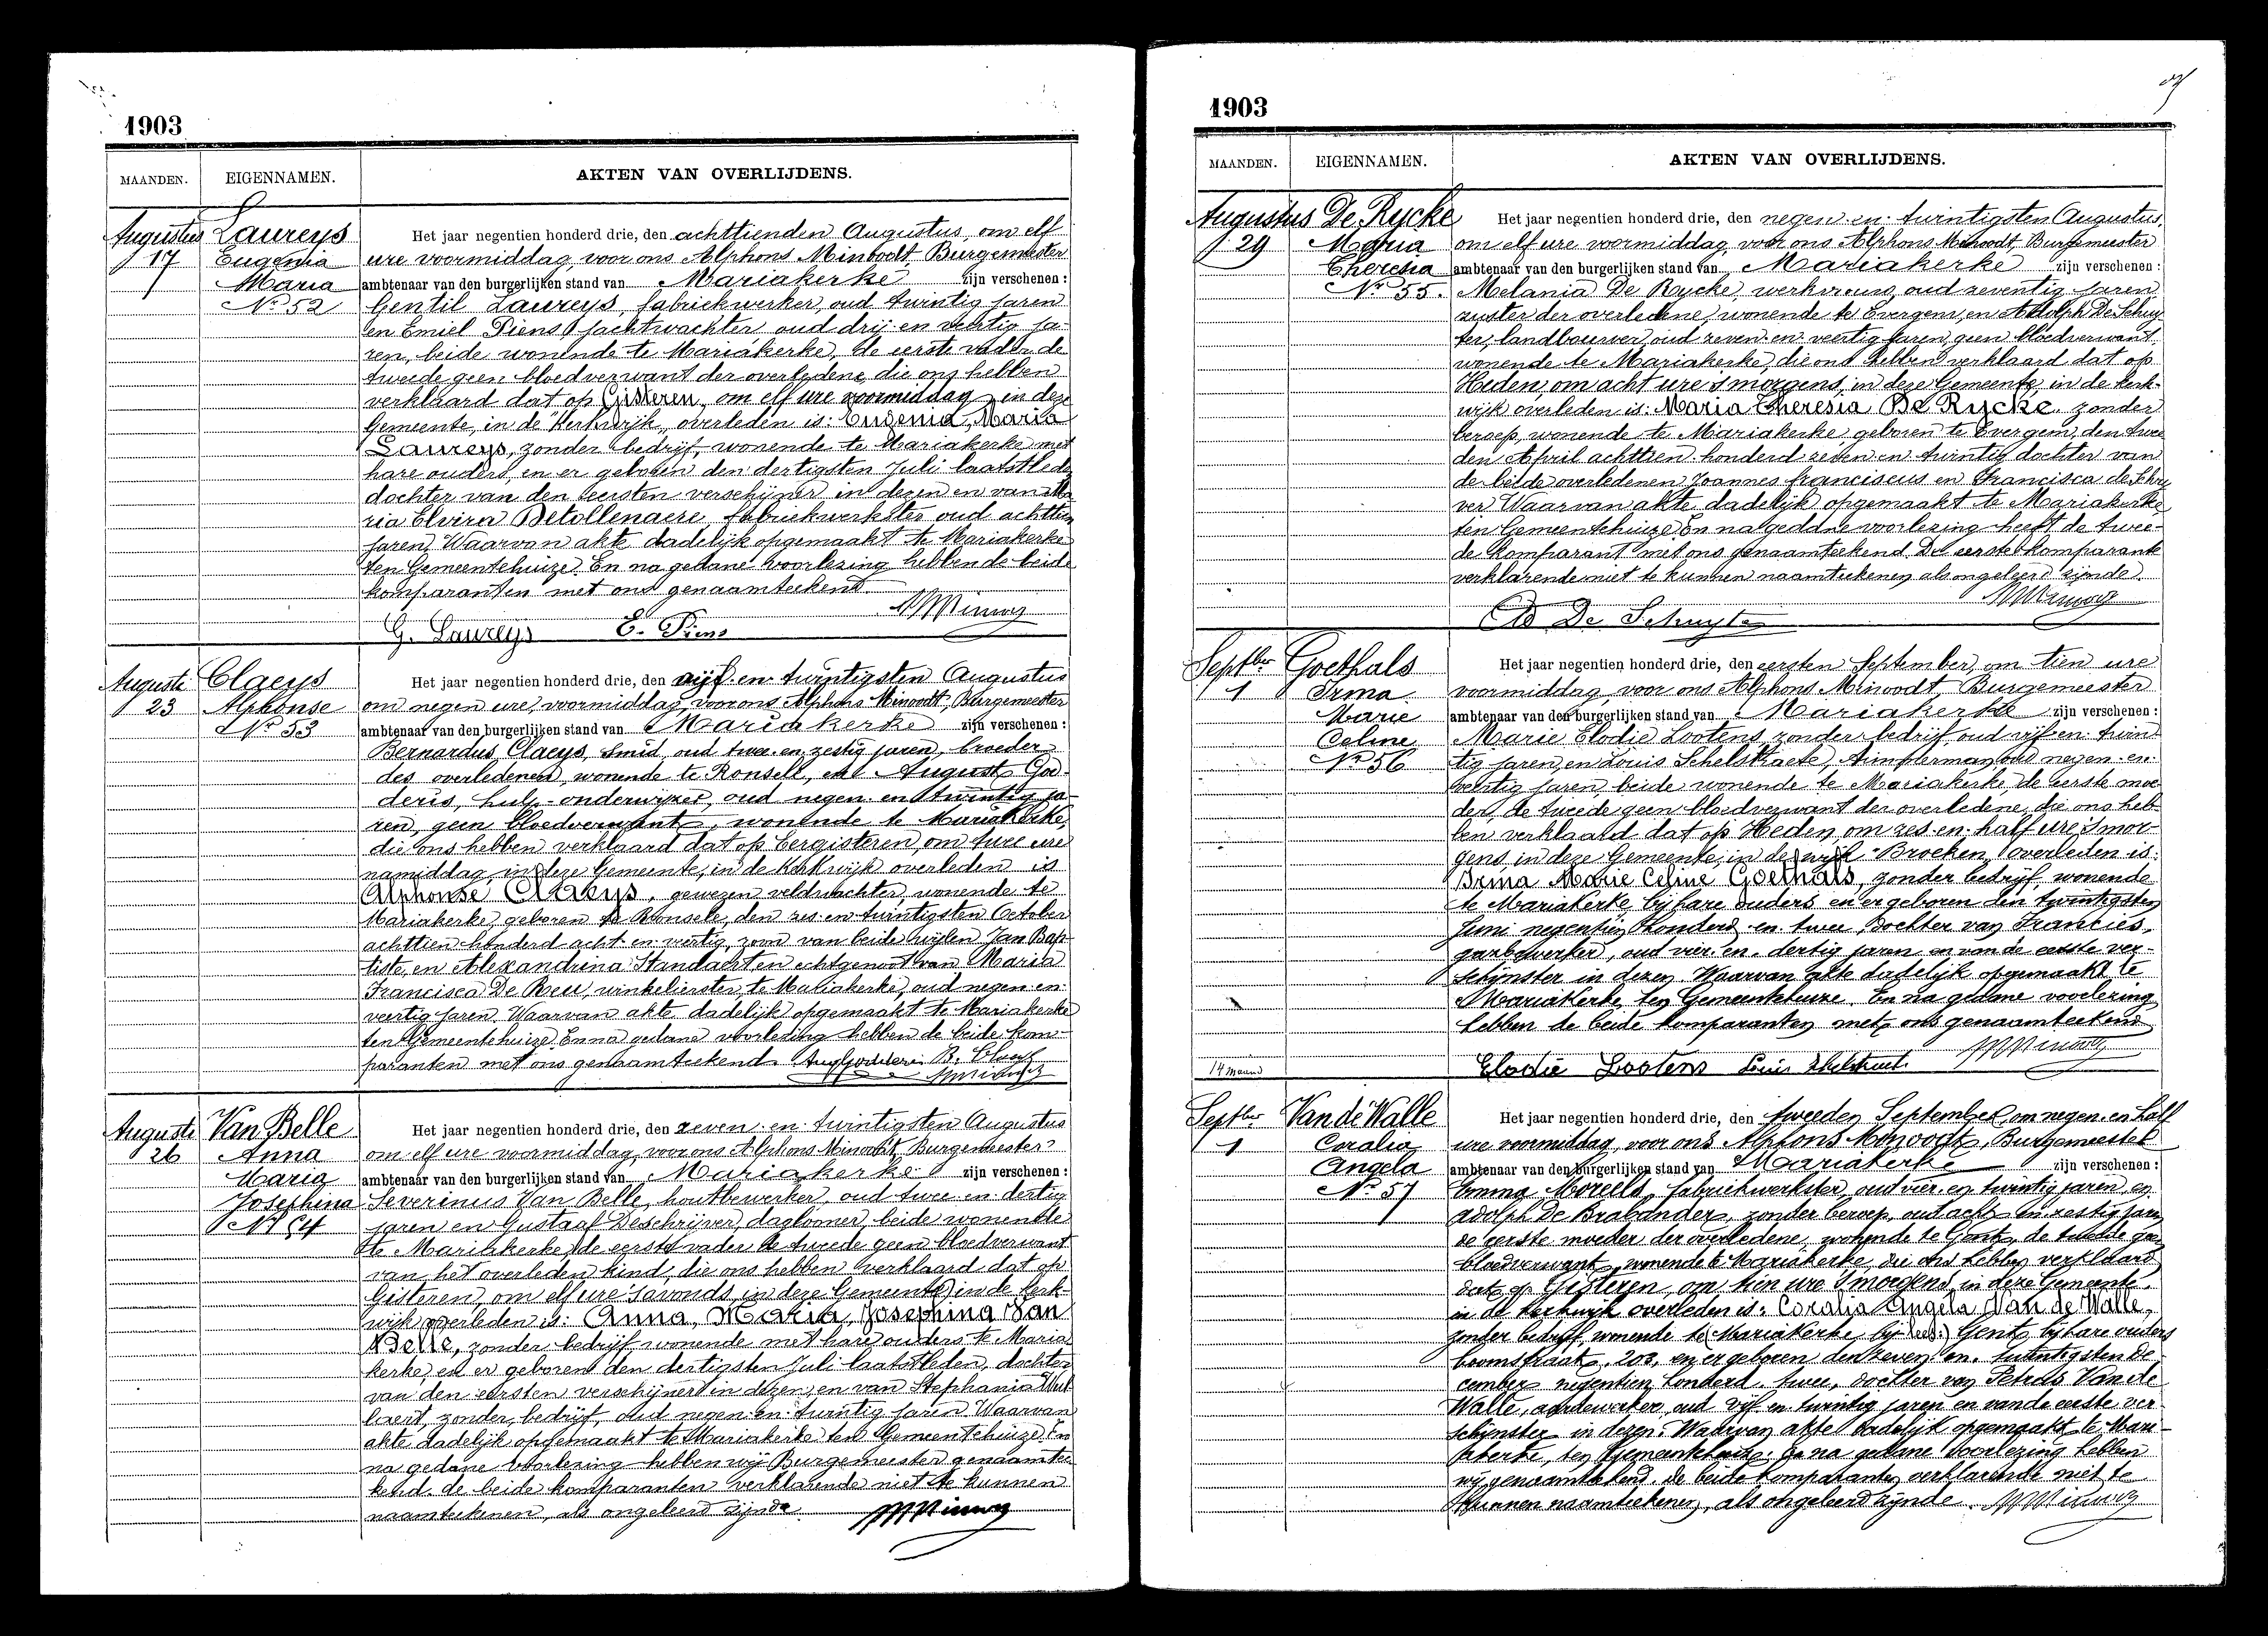 1903
MAANDEN. EIGENNAMEN. AKTEN VAN OVERLIJDENS.
Augustus 17
Laureys
Eugenia
Maria
No 52
Het jaar negentien honderd drie, den achttienden Augustus, om elf
ure voormiddag, voor ons Alphons Minoodt, Burgemeester
ambtenaar van den burgerlijken stand van Mariakerke zijn verschenen:
Gentil Laureys, fabriekwerker, oud twintig jaren
en Emiel Piens, jachtwachter, oud drij en veertig ja-
ren, beide wonende te Mariakerke, de eerste vader de
tweede geen bloedverwant der overledene, die ons hebben
verklaard dat op Gisteren, om elf ure voormiddag, in deze
Gemeente, in de Kerkwijk, overleden is: Eugenia, Maria
Laureys, zonder bedrijf, wonende te Mariakerke met
hare ouders, en er geboren den dertigsten Juli laatstleden
dochter van den eersten verschijner in dezen en van Ma
ria Elvira Detollenaere, fabriekwerkster oud achttien
jaren. Waarvan akte dadelijk opgemaakt te Mariakerke
ten Gemeentehuize. En na gedane voorlezing hebben de beide
komparanten met ons genaamteekend
G. Laureys E. Piens
Auguste 23
Claeys
Alphonse
No 53
Het jaar negentien honderd drie, den vijf en twintigsten Augustus
om negen ure, voormiddag, voor ons Alphons Minoodt, Burgemeester
ambtenaar van den burgerlijken stand van Mariakerke zijn verschenen:
Bernardus Claeys, smid, oud twee en zestig jaren, broeder
des overledenen, wonende te Ronsele, en August Go-
deris, hulp-onderwijzer, oud negen en twintig ja-
ren, geen bloedverwant, wonende te Mariakerke,
die ons hebben verklaard dat op Eergisteren, om twee ure
namiddag, in deze Gemeente, in de Kerkwijk overleden is
Alphonse Claeys, gewezen veldwachter, wonende te
Mariakerke, geboren te Ronsele, den zes en twintigsten October
achttien honderd acht en veertig, zoon van beide wijlen Jan Bap
tiste, en Alexandrina Standaert en echtgenoot van Maria
Francisca De Breu, winkelierster, te Mariakerke, oud negen en
veertig jaren. Waarvan akte dadelijk opgemaakt te Mariakerke
ten Gemeentehuize. En na gedane voorlezing hebben de beide kom-
paranten met ons genaamteekend. B. Claeys
Auguste 26
Van Belle
Anna
Maria
Josephina
No 54
Het jaar negentien honderd drie, den zeven en twintigsten Augustus
om elf ure voormiddag, voor ons Alphons Minoodt, Burgemeester
ambtenaar van den burgerlijken stand van Mariakerke zijn verschenen:
Severinus Van Belle, houtbewerker, oud twee en dertig
jaren en Gustaaf Deschrijver, daglooner, beide wonende
te Mariakerke, de eerste vader de tweede geen bloedverwant
van het overleden kind, die ons hebben verklaard dat op
Gisteren, om elf ure 's avonds, in deze Gemeente, in de Kerk-
wijk overleden is: Anna, Maria, Josephina Van
Belle, zonder bedrijf wonende met hare ouders te Maria
kerke, en er geboren den dertigsten Juli laatstleden, dochter
van den eersten verschijner in dezen, en van Stephania
zonder bedrijf, oud negen en twintig jaren. Waarvan
akte dadelijk opgemaakt te Mariakerke ten Gemeentehuize. En
na gedane voorlezing hebben wij Burgemeester genaamtee
kend, de beide komparanten verklarende niet te kunnen
naamteekenen, als ongeleerd zijnde.
1903
MAANDEN. EIGENNAMEN. AKTEN VAN OVERLIJDENS.
Augustus 29
De Rycke
Maria
Theresia
No 55.
Het jaar negentien honderd drie, den negen en twintigsten Augustus,
om elf ure voormiddag, voor ons Alphons Minoodt, Burgemeester
ambtenaar van den burgerlijken stand van Mariakerke zijn verschenen:
Melania De Rycke, werkvrouw, oud zeventig jaren
zuster der overledene, wonende te Evergem, en Adolph De Schuy
ter, landbouwer, oud zeven en veertig jaren, geen bloedverwant,
wonende te Mariakerke, die ons hebben verklaard dat op
Heden, om acht ure 's morgens, in deze Gemeente, in de Kerk-
wijk overleden is: Maria Theresia De Rycke, zonder
beroep, wonende te Mariakerke, geboren te Evergem, den twee
den April achttien honderd zeven en twintig dochter van
de beide overledenen Joannes franciscus en Francisca de Schry
ver. Waarvan akte dadelijk opgemaakt te Mariakerke
ten Gemeentehuize. En na gedane voorlezing heeft de twee-
de komparant met ons genaamteekend. De eerste komparante
verklarende niet te kunnen naamteekenen als ongeleerd zijnde.
Ad De Schuyter
Septber 1
Goethals
Irma
Marie
Celine
No 56
Het jaar negentien honderd drie, den eersten September, om tien ure
voormiddag, voor ons Alphons Minoodt, Burgemeester
ambtenaar van den burgerlijken stand van Mariakerke zijn verschenen:
Marie Elodie Lootens, zonder bedrijf, oud vijf en twin
tig jaren, en Louis Schelstraete, timmerman, oud negen en
veertig jaren, beide wonende te Mariakerke, de eerste moe
der, de tweede geen bloedverwant der overledene, die ons heb-
ben verklaard dat op Heden, om zes en half ure 's mor-
gens in deze Gemeente, in de wijk "Broeken" overleden is:
Irma Marie Celine Goethals, zonder bedrijf, wonende
te Mariakerke bij hare ouders en er geboren den twintigsten
Juni negentien honderd en twee, dochter van Francies,
oud vier en dertig jaren en van de eerste ver-
schijnster in dezen. Waarvan akte dadelijk opgemaakt te
Mariakerke, ten Gemeentehuize. En na gedane voorlezing
hebben de beide komparanten met ons genaamteekend
14 maand
Elodie Lootens Louis Schelstraete
Septber 1
Van de Walle
Coralia
Angela
No 57
Het jaar negentien honderd drie, den tweeden September, om negen en half
ure voormiddag, voor ons Alphons Minoodt, Burgemeester
ambtenaar van den burgerlijken stand van Mariakerke zijn verschenen:
Emma Moreels, fabriekwerkster, oud vier en twintig jaren, en
Adolph De Brabander, zonder beroep, oud acht en zestig jaren
de eerste moeder der overledene, wonende te Gent, de tweede geen
bloedverwant, wonende te Mariakerke, die ons hebben verklaard
dat op Gisteren, om tien ure 's morgens, in deze Gemeente,
in de Kerkwijk overleden is: Coralia Angela Van de Walle,
zonder bedrijf, wonende te Mariakerke, bij (lees:) Gent, bij hare ouders
boomstraat, 203, en er geboren den zeven en twintigsten De
cember negentien honderd twee, dochter van Petrus Van de
Walle, aardewerker, oud vijf en twintig jaren en van de eerste ver
schijnster in dezen. Waarvan akte dadelijk opgemaakt te Mari-
akerke, ten Gemeentehuize. En na gedane voorlezing hebben
wij genaamteekend, de beide komparanten verklarende niet te
kunnen naamteekenen, als ongeleerd zijnde.